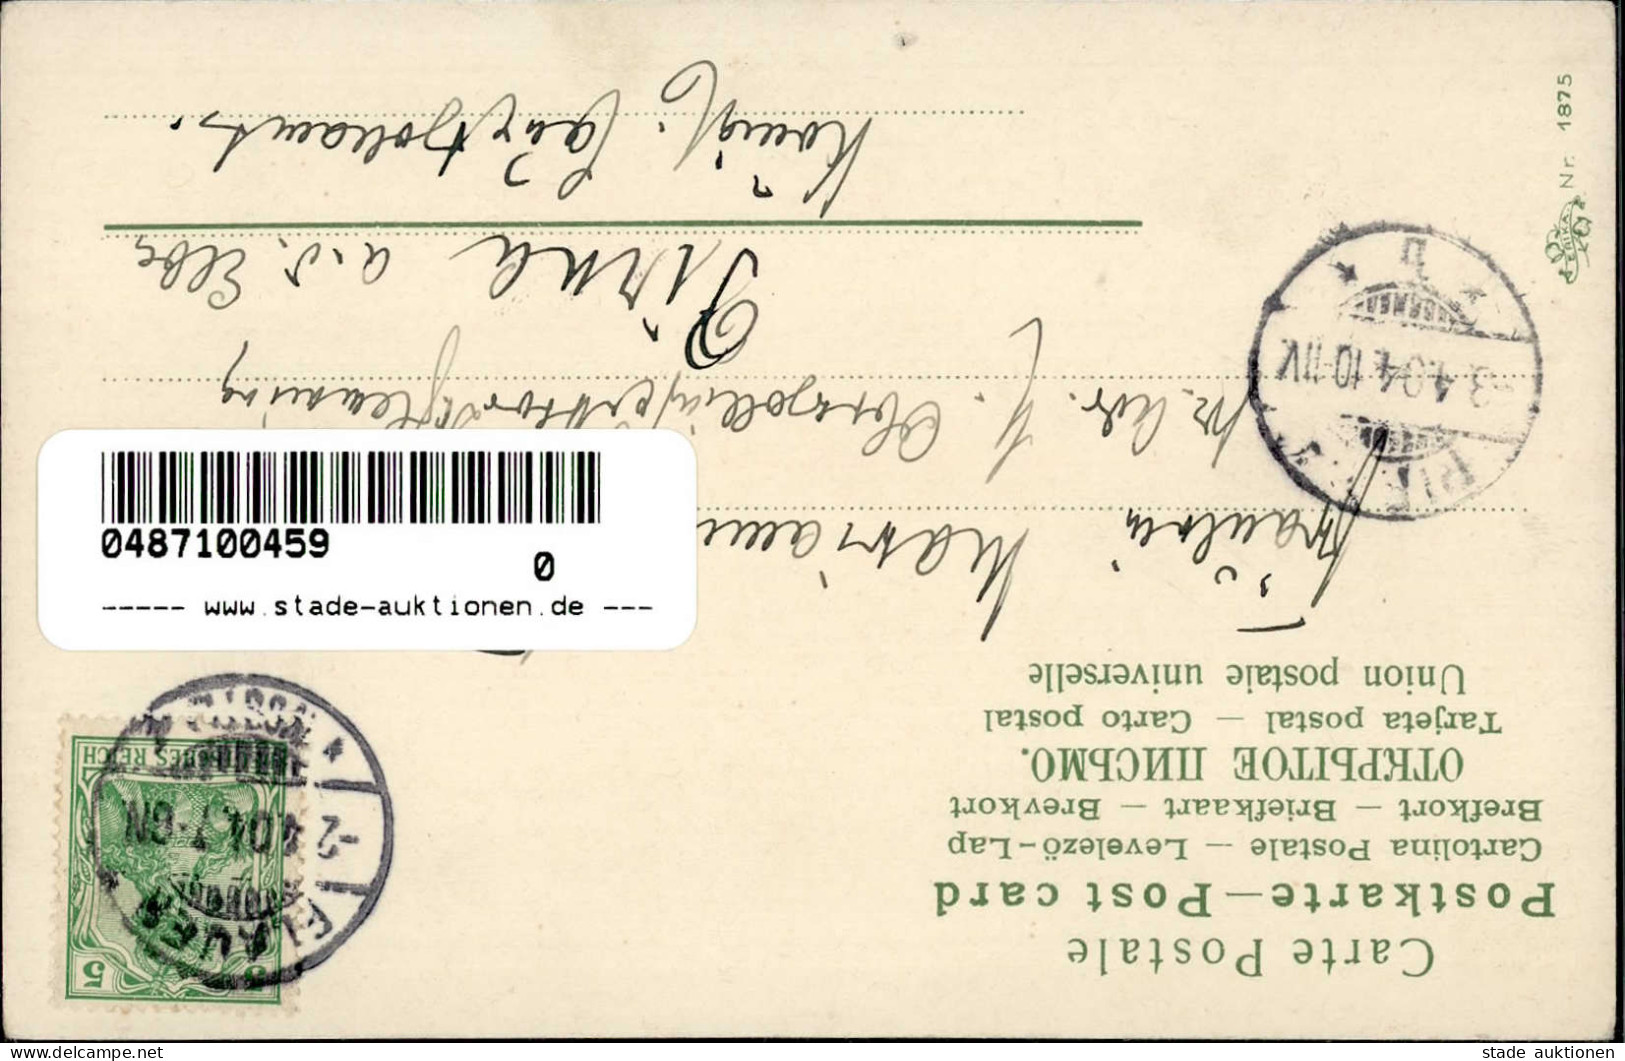 Carte Postale
Postkarte — Post card
Cartolina Postale — Levelező-Lap
Brefkort — Briefkaart — Brevkort
ОТКРЫТОЕ ПИСЬМО.
Tarjeta postal — Carto postal
Union postale universelle
5
DEUTSCHES REICH
PLAUEN
2 4 04 7-8N
3.4.04.10-11V.
Fräulein
Mariann
Pirna a.d. Elbe
Königl. Hauptzollamt.
ERIKA
Nr. 1875
0487100459
0
----- www.stade-auktionen.de ---
www.delcampe.net
stade_auktionen